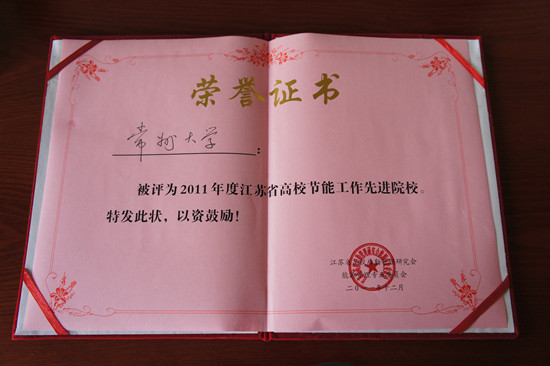 荣誉证书
常州大学：
被评为2011年度江苏省高校节能工作先进院校。
特发此状，以资鼓励！
江苏省 研究会
能 专 委员会
二〇一 年十二月